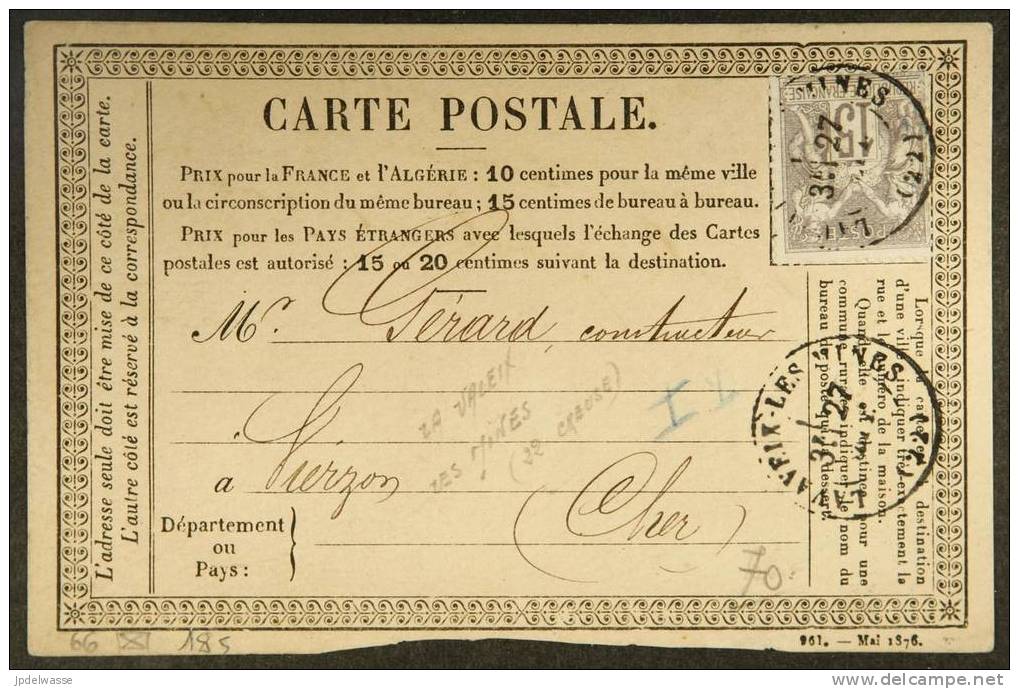 CARTE POSTALE.
PRIX pour la FRANCE et l'ALGÉRIE : 10 centimes pour la même ville
ou la circonscription du même bureau ; 15 centimes de bureau à bureau.
PRIX pour les PAYS ÉTRANGERS avec lesquels l'échange des Cartes
postales est autorisé : 15 ou 20 centimes suivant la destination.
Mr. Gérard, constructeur
à Vierzon
(Cher)
Département
ou
Pays :
L'adresse seule doit être mise de ce côté de la carte.
L'autre côté est réservé à la correspondance.
Lorsque la carte est à destination
d'une ville, indiquer très-exactement la
rue et le numéro de la maison.
Quand elle est destinée pour une
commune rurale, indiquer le nom du
bureau de poste qui la dessert.
15
MINES
3E / 27
(22)
LAVAVEIX-LES-MINES (22)
3E / 27
LA VALEIX
LES MINES
(22 CREUSE)
70
66 XI 185
961. — Mai 1876.
jpdelwasse
delcampe.net